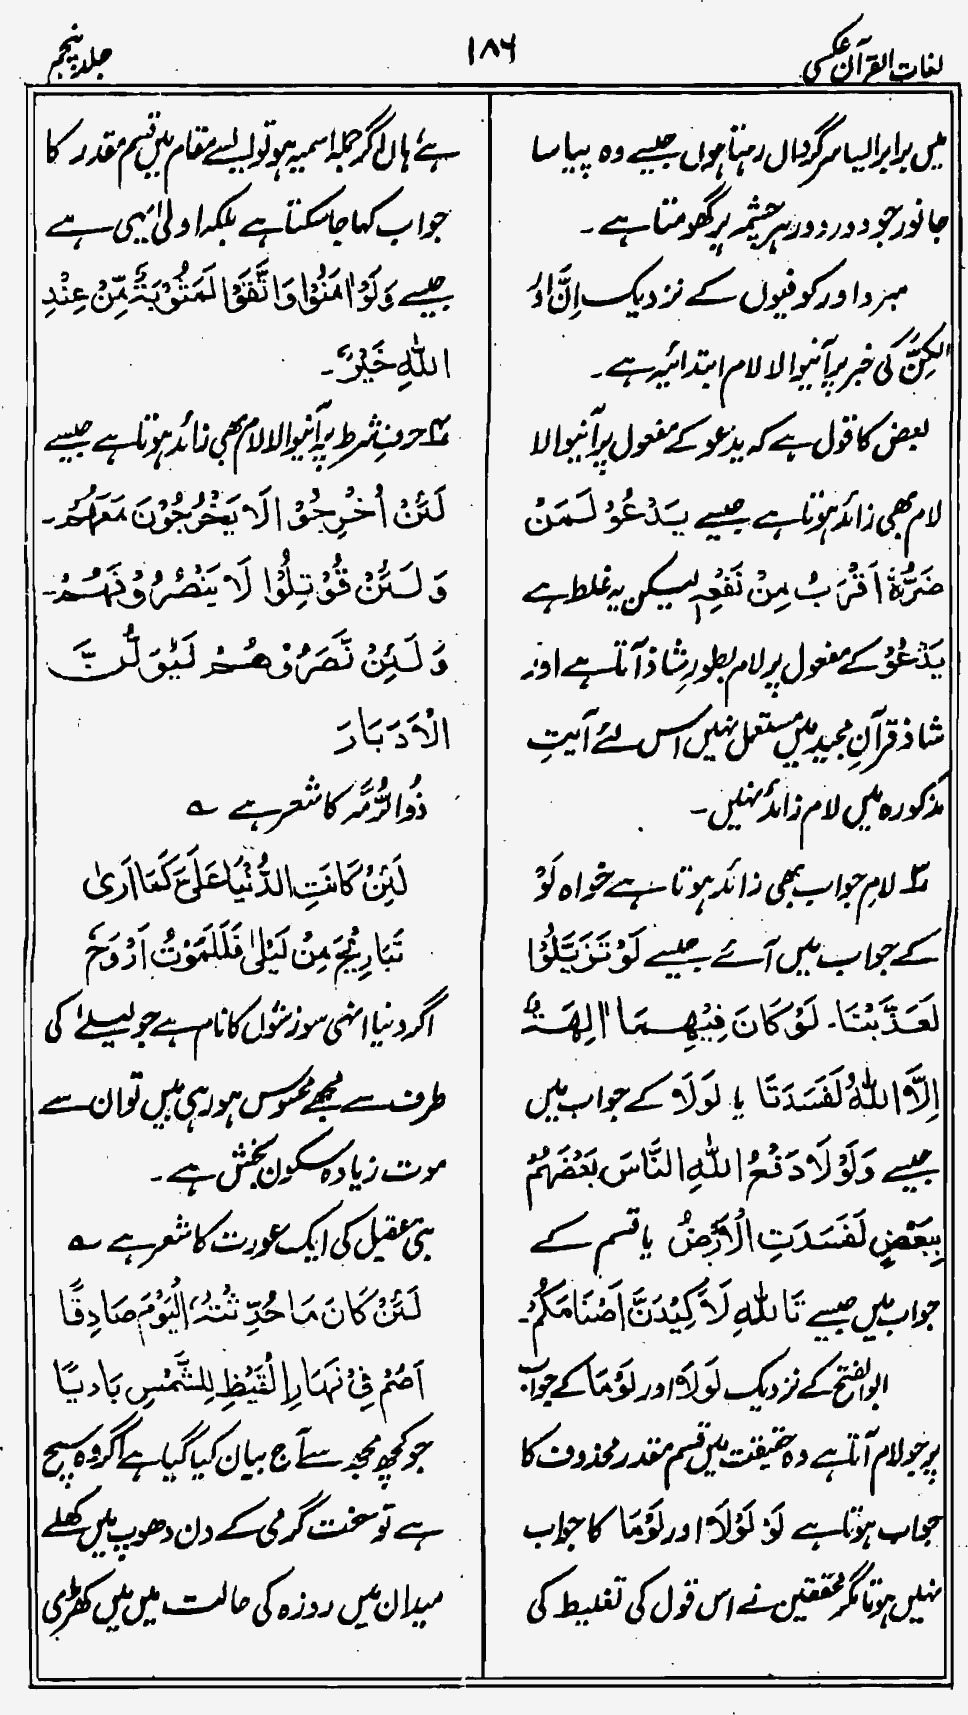 لغات القرآن عکسی
۱۸۶
جلد پنجم
میں برابر ایسا سرگرداں رہتا ہوں جیسے وہ پیاسا
جانور جو دور دور ہر چشمہ پر گھومتا ہے ۔
مبرد اور کوفیوں کے نزدیک اِنَّ اور
لٰکِنَّ کی خبر پر آنیوالا لام ابتدائیہ ہے ۔
بعض کا قول ہے کہ یدعو کے مفعول پر آنیوالا
لام بھی زائد ہوتا ہے جیسے یَدْعُوْ لَمَنْ
ضَرُّہٗ اَقْرَبُ مِنْ نَفْعِہٖ لیکن یہ غلط ہے
یَدْعُوْ کے مفعول پر لام بطورِ شاذ آتا ہے اور
شاذ قرآنِ مجید میں مستعمل نہیں اس لئے آیتِ
مذکورہ میں لام زائد نہیں ۔
لامِ جواب بھی زائد ہوتا ہے خواہ لَوْ
کے جواب میں آئے جیسے لَوْ تَزَیَّلُوْا
لَعَذَّبْنَا ۔ لَوْ کَانَ فِیْہِمَا اٰلِہَۃٌ
اِلَّا اللّٰہُ لَفَسَدَتَا یا لَوْلَا کے جواب میں
جیسے وَلَوْلَا دَفْعُ اللّٰہِ النَّاسَ بَعْضَہُمْ
بِبَعْضٍ لَفَسَدَتِ الْاَرْضُ یا قسم کے
جواب میں جیسے تَاللّٰہِ لَاَکِیْدَنَّ اَصْنَامَکُمْ ۔
ابوالفتح کے نزدیک لَوْلَا اور لَوْمَا کے جواب
پر جو لام آتا ہے وہ حقیقت میں قسم مقدر محذوف کا
جواب ہوتا ہے لَوْ لَوْلَا اور لَوْمَا کا جواب
نہیں ہوتا مگر محققین نے اس قول کی تغلیط کی
ہے ہاں اگر جملہ اسمیہ ہو تو ایسے مقام میں قسم مقدر کا
جواب کہا جا سکتا ہے بلکہ اولیٰ یہی ہے
جیسے وَلَوْ اٰمَنُوْا وَاتَّقَوْا لَمَثُوْبَۃٌ مِّنْ عِنْدِ
اللّٰہِ خَیْرٌ ۔
حرفِ شرط پر آنیوالا لام بھی زائد ہوتا ہے جیسے
لَئِنْ اُخْرِجُوْا لَا یَخْرُجُوْنَ مَعَہُمْ ۔
وَلَئِنْ قُوْتِلُوْا لَا یَنْصُرُوْنَہُمْ ۔
وَلَئِنْ نَّصَرُوْہُمْ لَیُوَلُّنَّ
الْاَدْبَارَ
ذُوالرُّمَّہ کا شعر ہے ؎
لَئِنْ کَانَتِ الدُّنْیَا عَلَیَّ کَمَا اَرٰی
تَبَارِیْحَ مِنْ لَیْلٰی فَلَلْمَوْتُ اَرْوَحُ
اگر دنیا انہی سوزشوں کا نام ہے جو لیلےٰ کی
طرف سے مجھے محسوس ہو رہی ہیں تو ان سے
موت زیادہ سکون بخش ہے ۔
بنی عقیل کی ایک عورت کا شعر ہے ؎
لَئِنْ کَانَ مَا حُدِّثْتُہٗ الْیَوْمَ صَادِقًا
اَصُمْ فِیْ نَہَارِ الْقَیْظِ لِلشَّمْسِ بَادِیًا
جو کچھ مجھ سے آج بیان کیا گیا ہے اگر وہ سچ
ہے تو سخت گرمی کے دن دھوپ میں کھلے
میدان میں روزہ کی حالت میں میں کھڑی